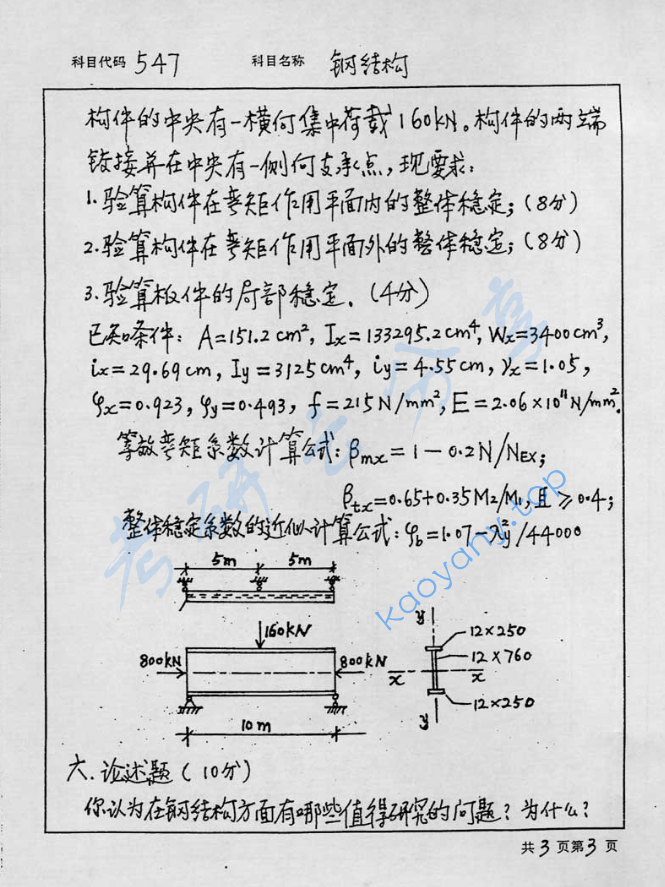 科目代码 547 科目名称 钢结构
构件的中央有一横向集中荷载160kN。构件的两端
铰接并在中央有一侧向支承点,现要求:
1.验算构件在弯矩作用平面内的整体稳定;(8分)
2.验算构件在弯矩作用平面外的整体稳定;(8分)
3.验算板件的局部稳定.(4分)
已知条件: A=151.2cm², Ix=133295.2cm⁴, Wx=3400cm³,
ix=29.69cm, Iy=3125cm⁴, iy=4.55cm, γx=1.05,
φx=0.923, φy=0.493, f=215N/mm², E=2.06×10¹¹N/mm².
等效弯矩系数计算公式: βmx=1-0.2N/NEX;
βtx=0.65+0.35M₂/M₁,且≥0.4;
整体稳定系数的近似计算公式: φb=1.07-λy²/44000
5m 5m
160kN
800kN 800kN
10m
y
12×250
12×760
x x
12×250
y
六.论述题(10分)
你认为在钢结构方面有哪些值得研究的问题?为什么?
共3页第3页
考研无丙荐
kaoyany.top